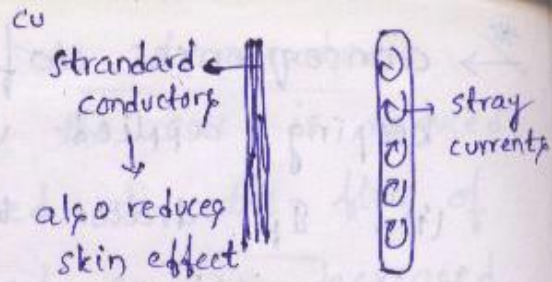 CU
strandard
conductors
also reduces
skin effect
stray
currents